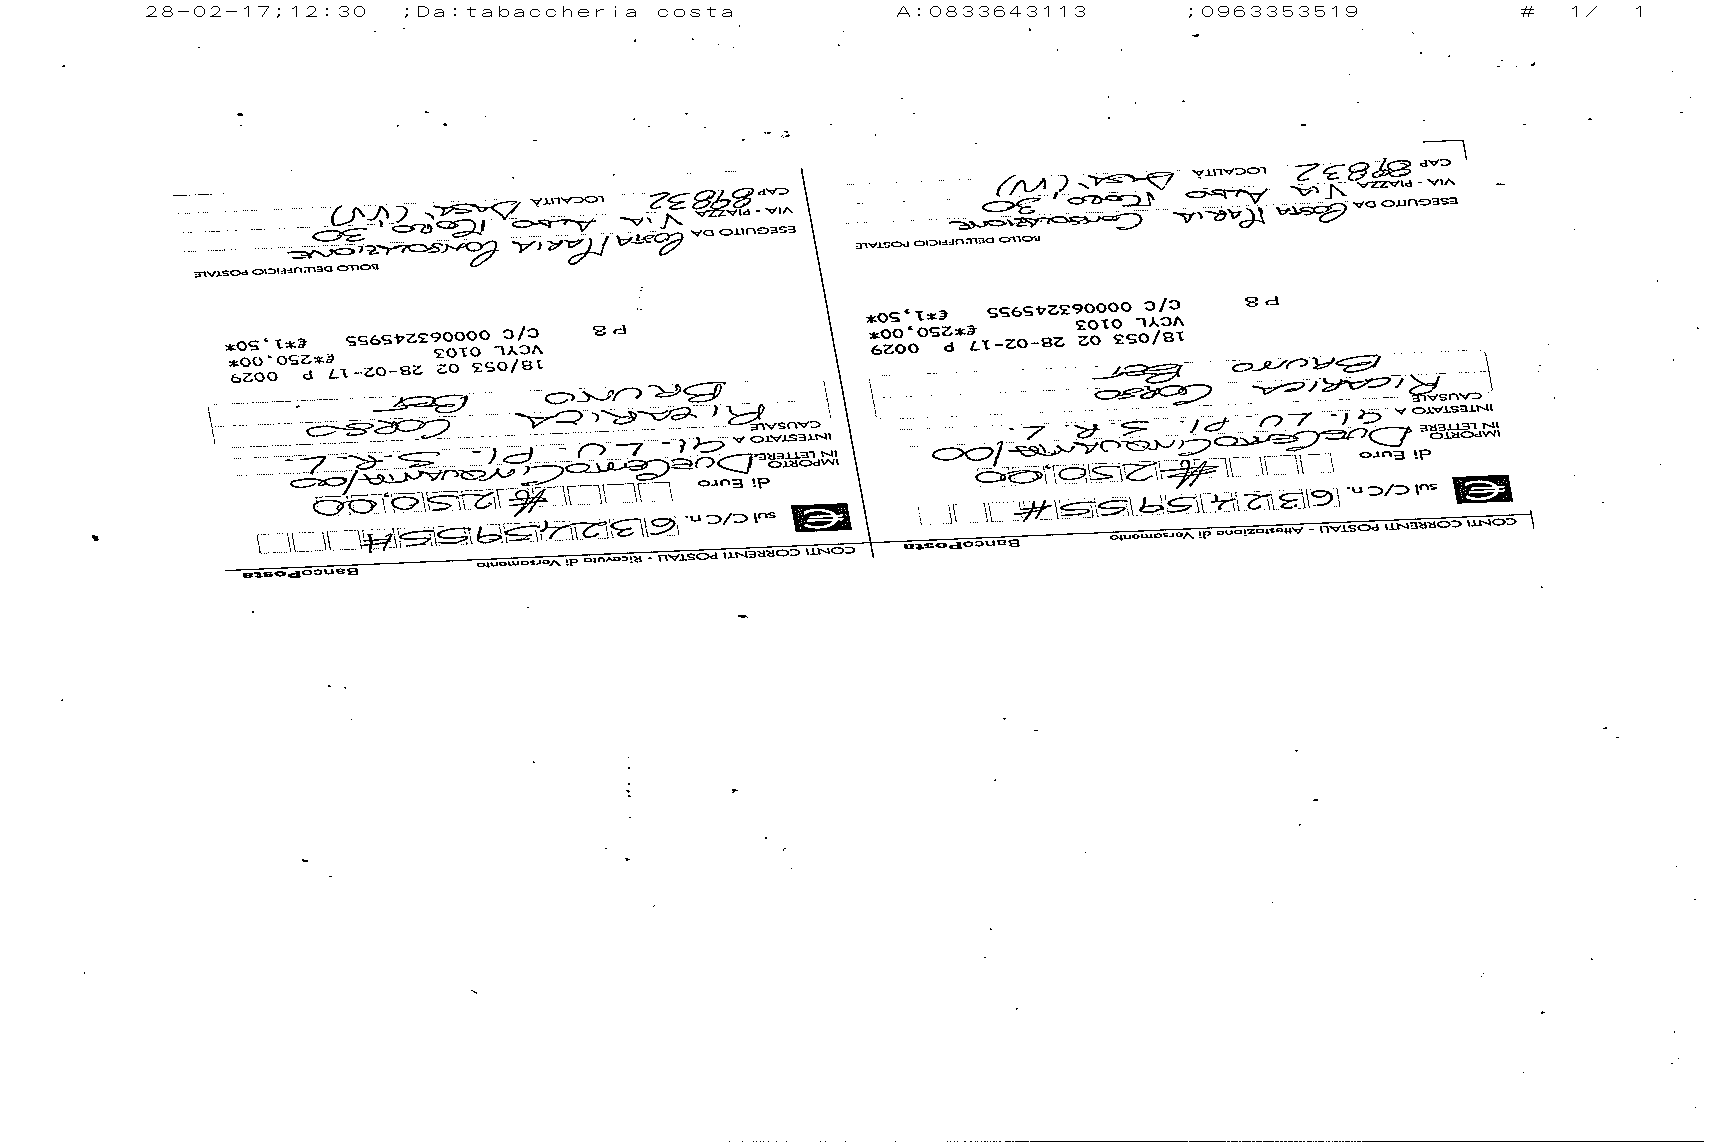 28-02-17;12:30 ;Da:tabaccheria costa A:0833643113 ;0963353519 # 1/ 1
CONTI CORRENTI POSTALI - Attestazione di Versamento BancoPosta
sul C/C n. 63245955#
di Euro #250,00
IMPORTO IN LETTERE DueCentoCinquanta/00
INTESTATO A GI. LU. PI. S R L.
CAUSALE
RICARICA CORSO
BRUNO BEST
18/053 02 28-02-17 P 0029
VCYL 0103 €*250,00*
C/C 000063245955 €*1,50*
P 8
BOLLO DELL'UFFICIO POSTALE
ESEGUITO DA COSTA MARIA CONSOLAZIONE
VIA - PIAZZA VIA ALDO MORO, 30
CAP 89832 LOCALITÀ DASA' (VV)
CONTI CORRENTI POSTALI - Ricevuta di Versamento BancoPosta
sul C/C n. 63245955#
di Euro #250,00
IMPORTO IN LETTERE DueCentoCinquanta/00
INTESTATO A GI. LU. PI. S. R. L.
CAUSALE
RICARICA CORSO
BRUNO BEST
18/053 02 28-02-17 P 0029
VCYL 0103 €*250,00*
C/C 000063245955 €*1,50*
P 8
BOLLO DELL'UFFICIO POSTALE
ESEGUITO DA COSTA MARIA CONSOLAZIONE
VIA - PIAZZA VIA ALDO MORO, 30
CAP 89832 LOCALITÀ DASA' (VV)